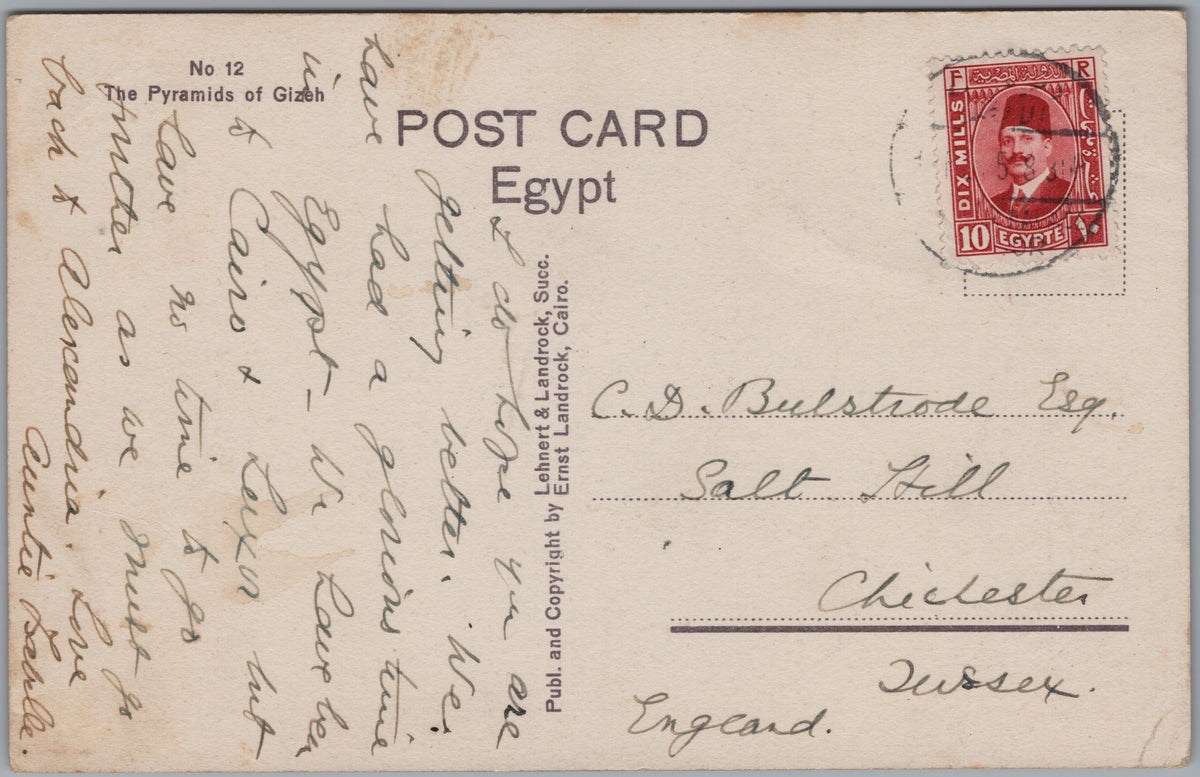 No 12
The Pyramids of Gizeh
POST CARD
Egypt
I do hope you are
getting better. We
have had a glorious time
in Egypt – We have been
to Cairo & Luxor but
have no time to go
further as we must go
back to Alexandria. Love
Auntie
Publ. and Copyright by Lehnert & Landrock, Succ.
Ernst Landrock, Cairo.
F R
الدولة المصرية
DIX MILLS
عشرة مليمات
10 EGYPTE ١٠
C. D. Bulstrode Esq.
Salt Hill
Chichester
Sussex.
England.